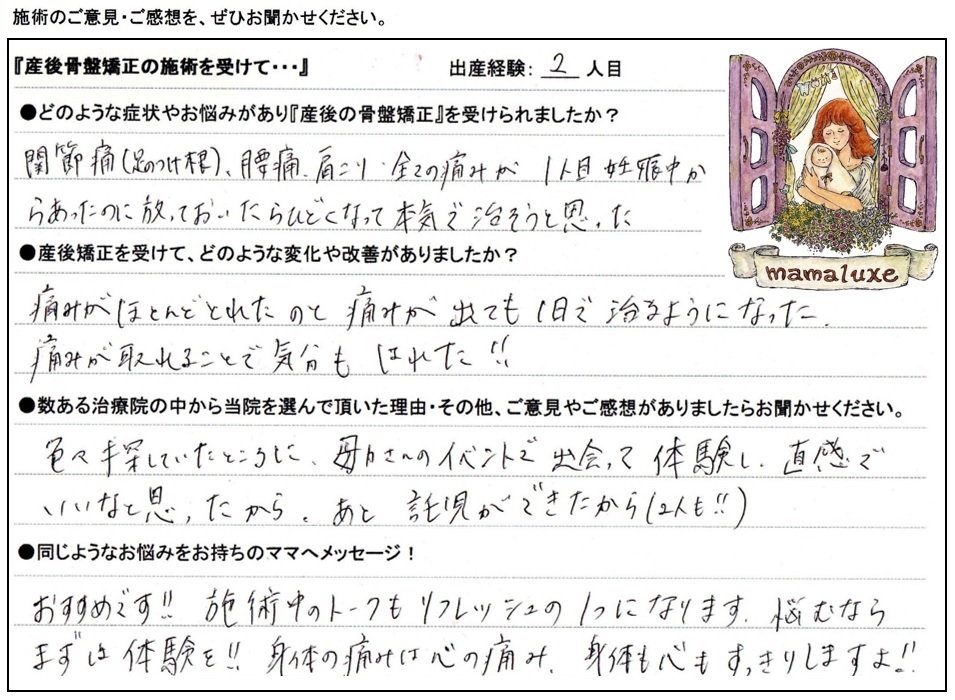 施術のご意見・ご感想を、ぜひお聞かせください。
『産後骨盤矯正の施術を受けて・・・』 出産経験: 2 人目
●どのような症状やお悩みがあり『産後の骨盤矯正』を受けられましたか？
関節痛(足のつけ根)、腰痛、肩こり 全ての痛みが 1人目 妊娠中か
らあったのに放っておいたらひどくなって本気で治そうと思った
●産後矯正を受けて、どのような変化や改善がありましたか？
痛みがほとんどとれたのと 痛みが 出ても 1日で 治るようになった.
痛みが取れることで気分も はれた!!
mamaluxe
●数ある治療院の中から当院を選んで頂いた理由・その他、ご意見やご感想がありましたらお聞かせください。
色々探していたところに、母力さんのイベントで 出会って 体験し、直感で
いいなと思ったから。あと 託児ができたから(2人も!!)
●同じようなお悩みをお持ちのママへメッセージ！
おすすめです!! 施術中のトークもリフレッシュの1つになります. 悩むなら
まずは 体験を!! 身体の痛みは心の痛み、身体も心もすっきりしますよ!!